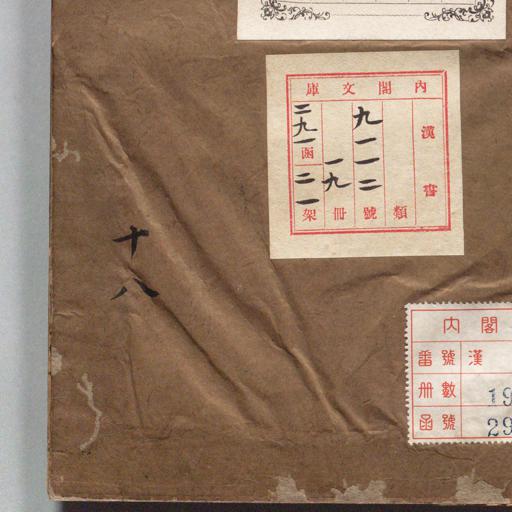 内閣文庫
漢書
類
九一一二號
一九冊
二九一函
二一架
十八
内閣
番號 漢
冊數 19
函號 29